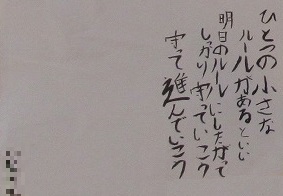 ひとつの小さな
ルールがあるといい
明日のルールにしたがって
しっかり守っていこう
守って進んでいこう